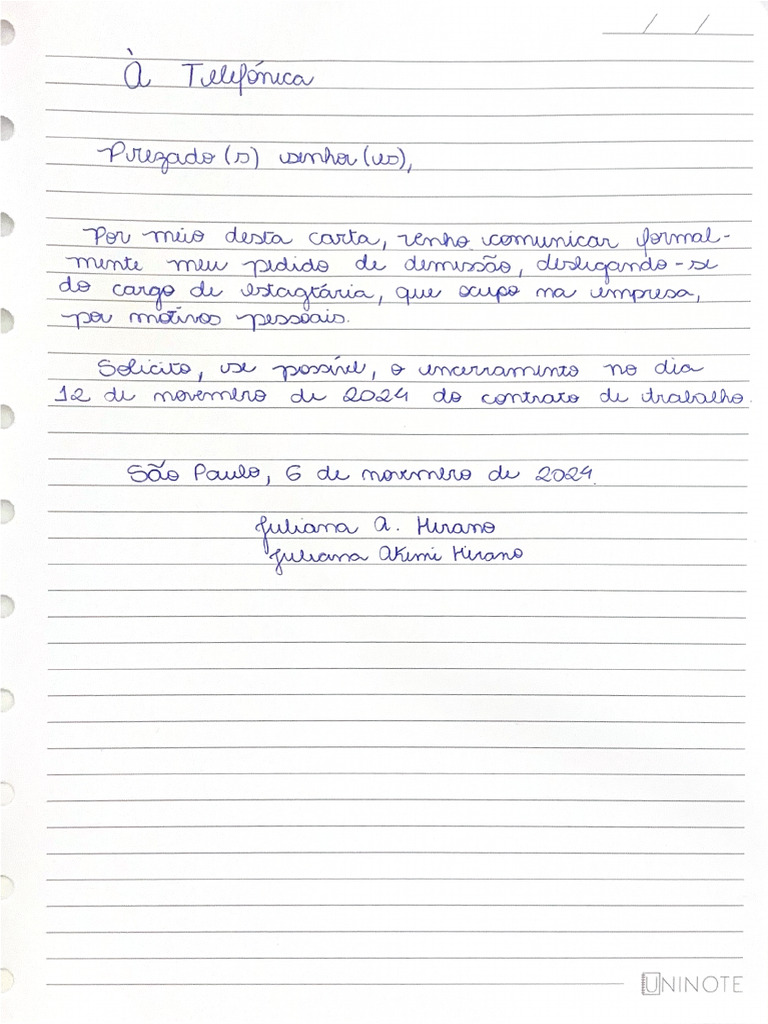 / /
À Telefónica
Prezado(s) senhor(es),
Por meio desta carta, venho comunicar formal-
mente meu pedido de demissão, desligando-se
do cargo de estagiária, que ocupo na empresa,
por motivos pessoais.
Solicito, se possível, o encerramento no dia
12 de novembro de 2024 do contrato de trabalho.
São Paulo, 6 de novembro de 2024.
Juliana A. Hirano
Juliana Akemi Hirano
UNINOTE